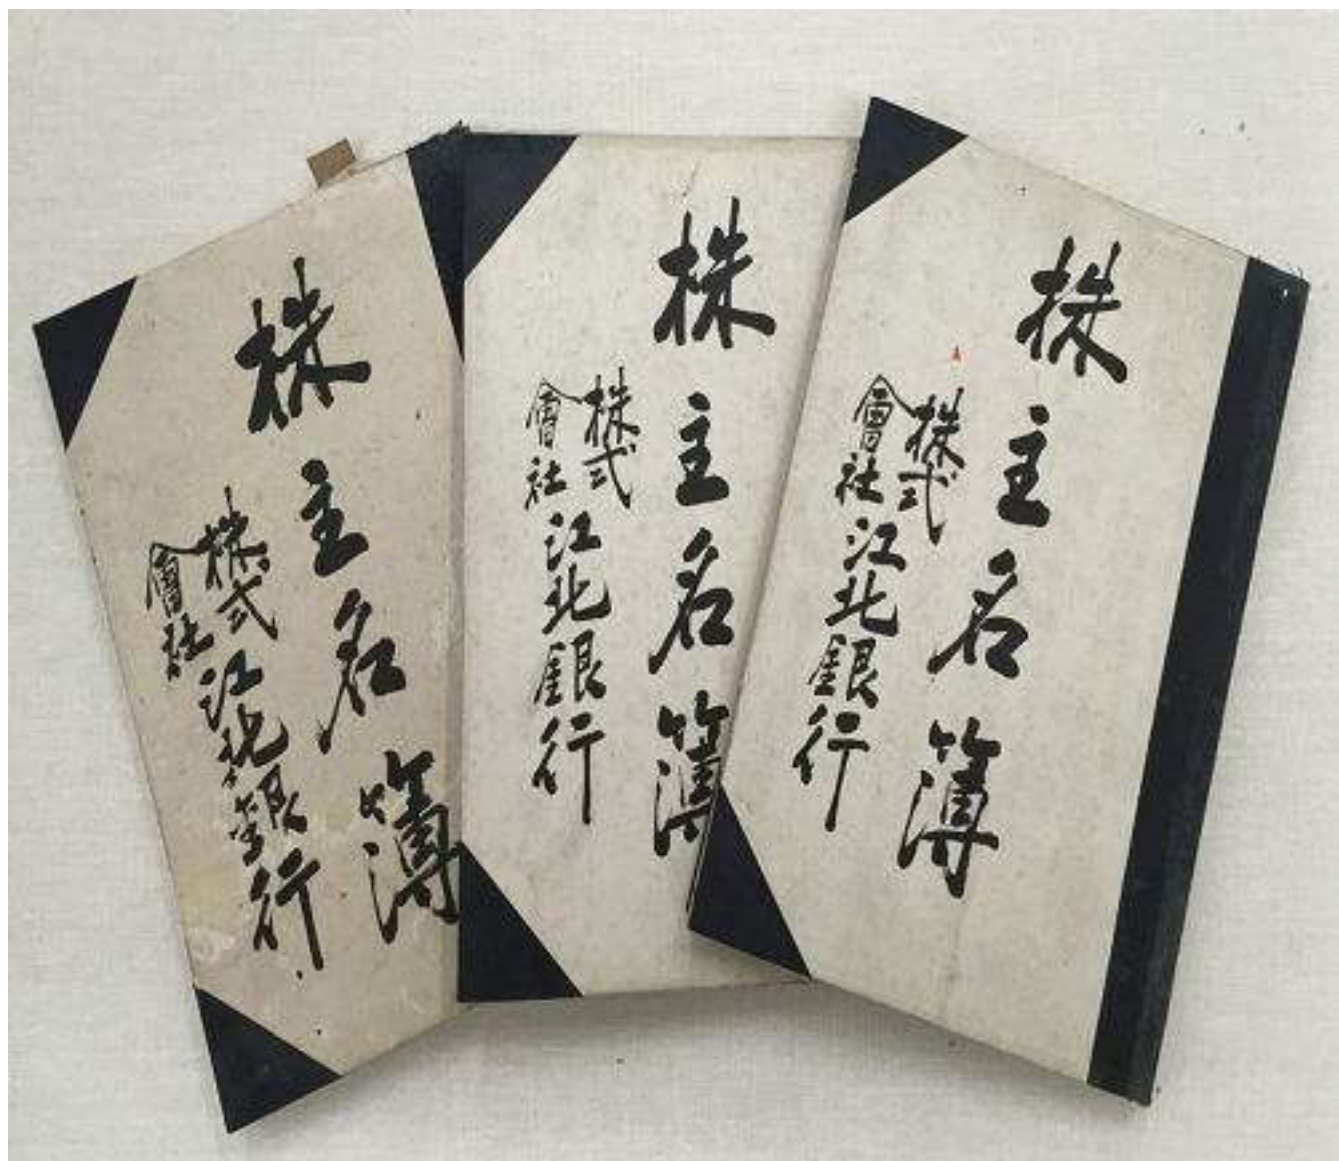 株主名簿
株式會社江北銀行
株主名簿
株式會社江北銀行
株主名簿
株式會社江北銀行